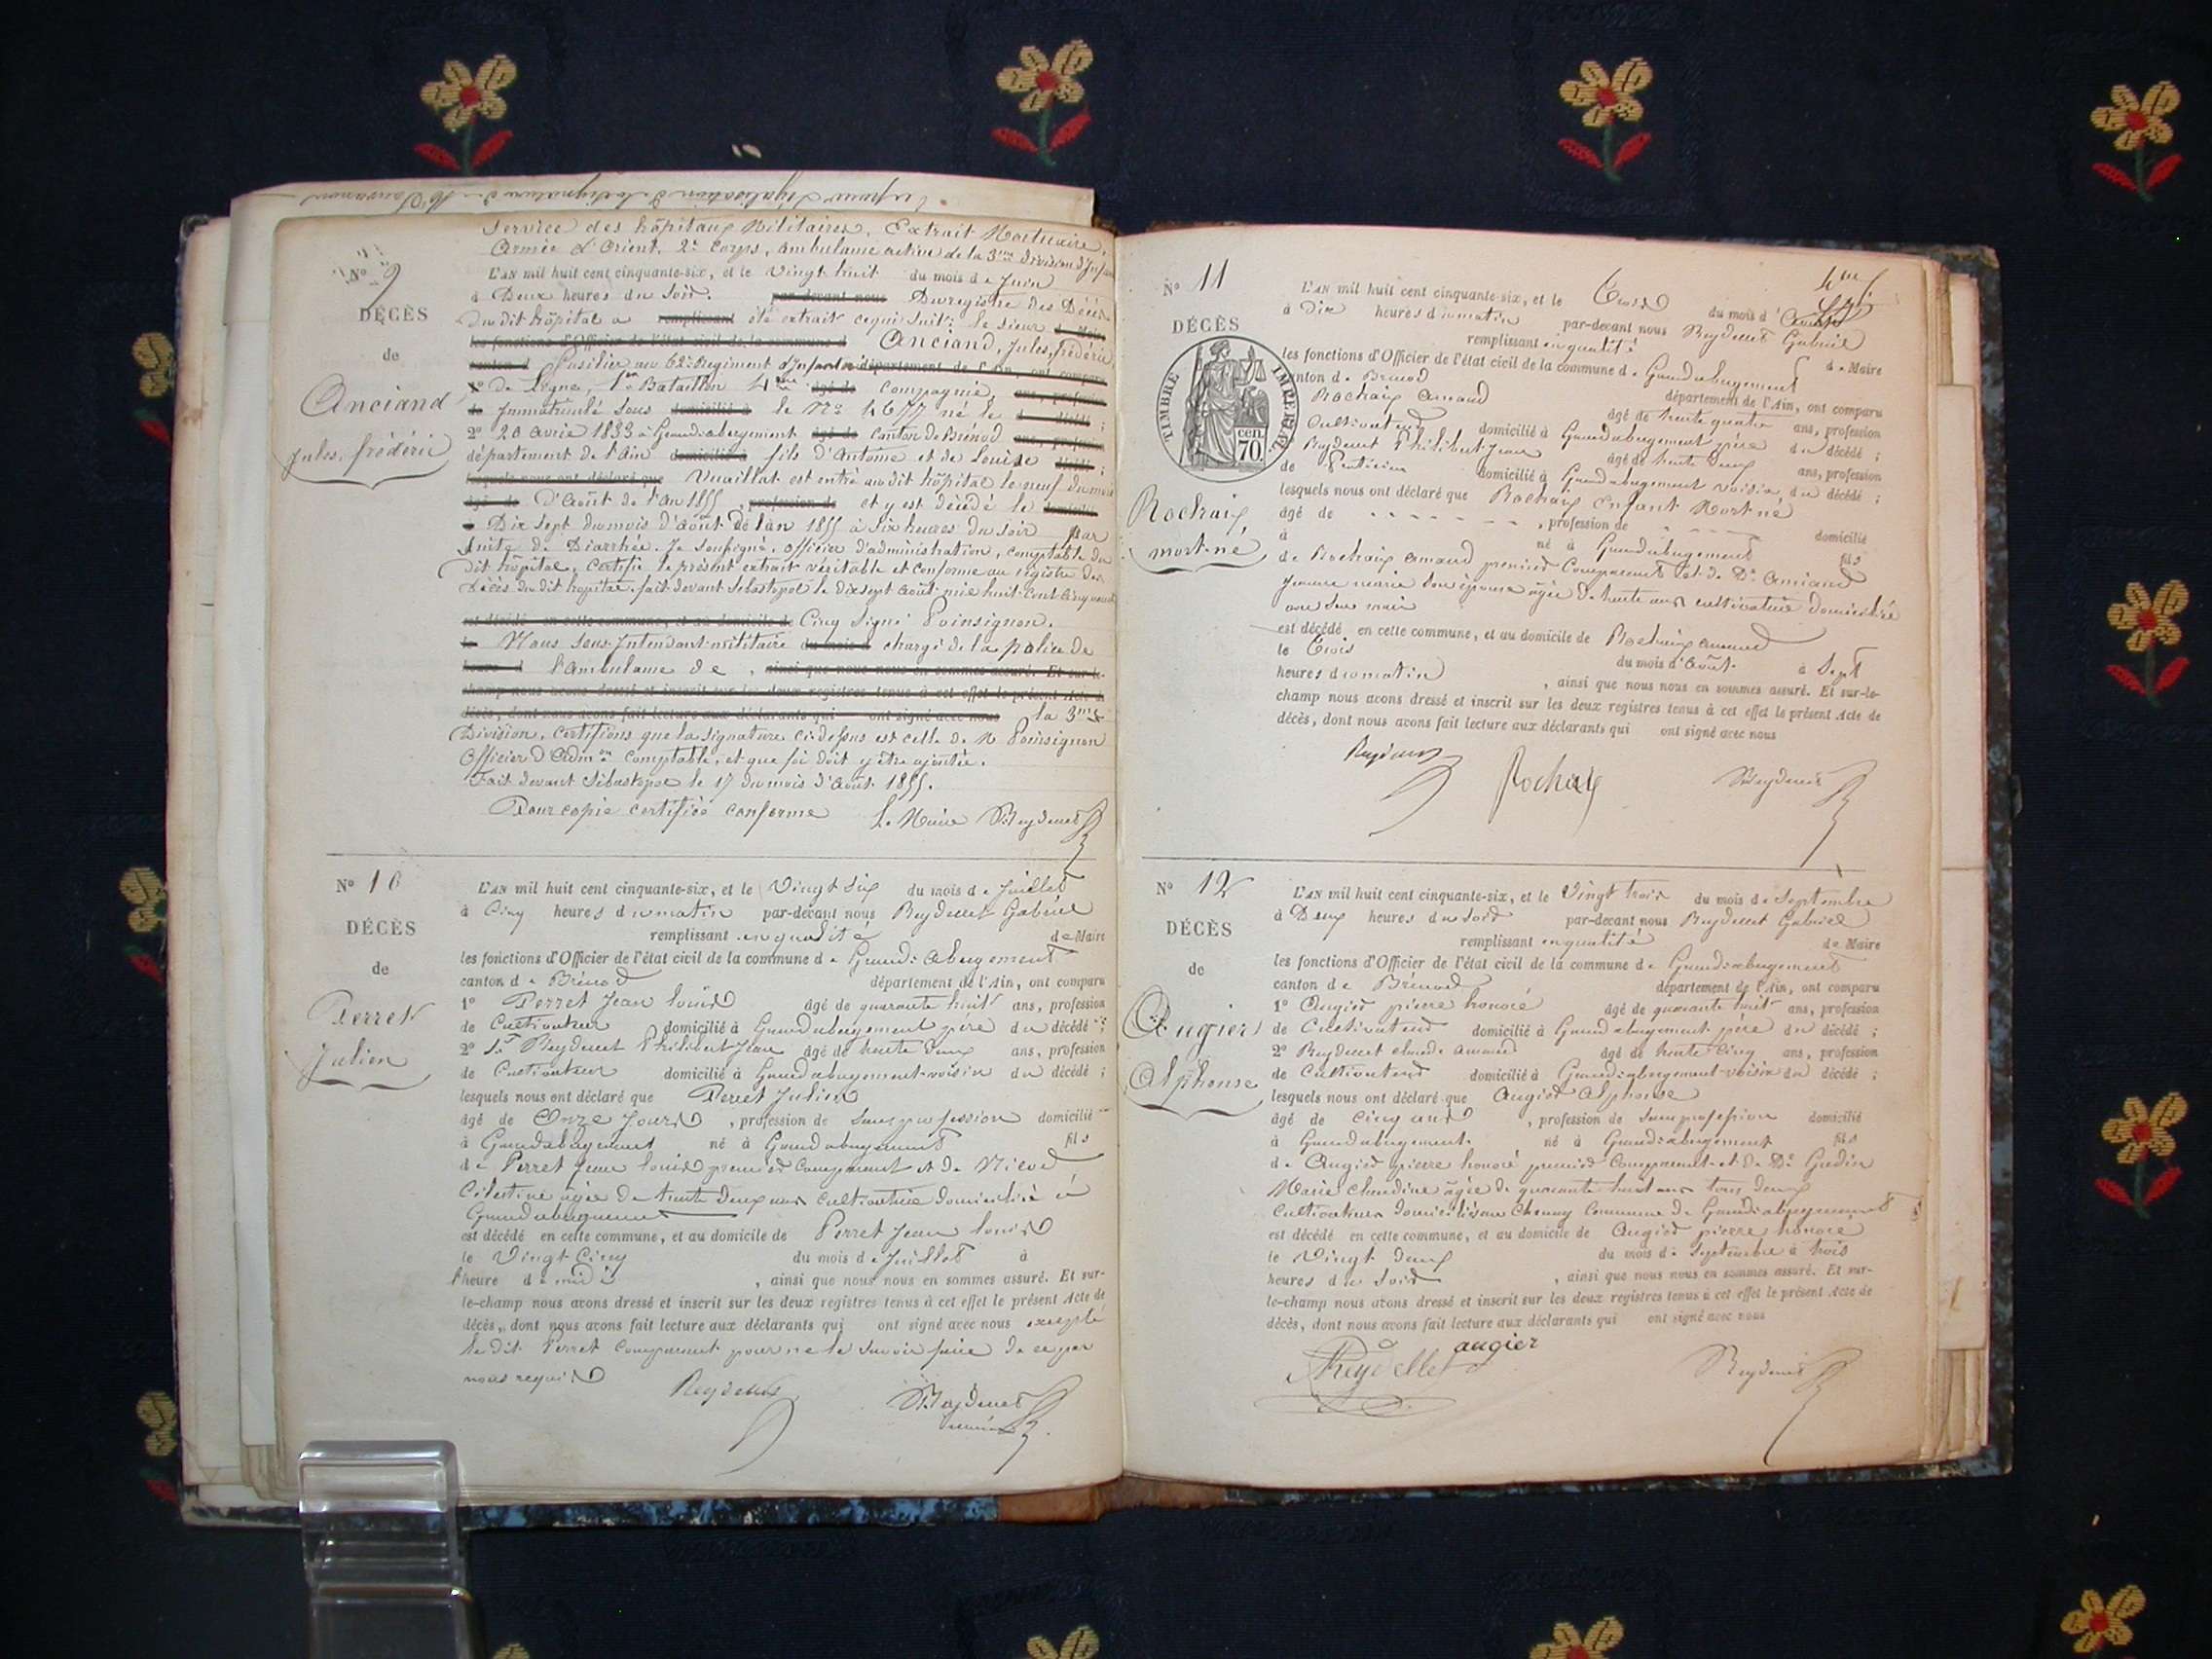 Service des hôpitaux Militaires, Extrait Mortuaire,
Armée d'Orient, 2e Corps, ambulance active de la 3me Division d'Inf
No 9
DÉCÈS
de
Anciand
Jules, frédéric
L'AN mil huit cent cinquante-six, et le Vingt huit du mois de Juin
à Deux heures du Soir. par-devant nous Du registre des Décès
Du dit hôpital a remplissant été extrait ce qui Suit: le Sieur d Maire
les fonctions d'Officier de l'état civil de la commune d Anciand, Jules, frédéric
canton d fusilier au 62e Regiment d'Infanterie département de l'Ain, ont comparu
1o De Ligne, 1er Bataillon 4me âgé de Compagnie, ans, profession
de Immatriculé Sous domicilié à le No 4677 né le d décédé ;
2o 20 avril 1833 à Grandabergement âgé de Canton de Brénod ans, profession
département de l'Ain domicilié à fils d'Antoine et de Louise décédé ;
lesquels nous ont déclaré que Vuaillat est entré au dit hôpital le neuf du mois
âgé de D'Août de l'An 1855 , profession de et y est décédé le domicilié
Dix Sept du mois d'Août de l'an 1855 à Six heures du Soir Par
Suite de Diarrhée. Je Soussigné, officier d'administration, comptable du
dit hôpital, certifie le présent extrait véritable et conforme au registre des
Décès du dit hopital. fait devant Sébastopol le dix sept Août mil huit cent cinquante
est décédé en cette commune, et au domicile de Cinq Signé Poinsignon.
le Nous Sous-Intendant militaire du mois d chargé de la police de
heure d l'Ambulance de , ainsi que nous nous en sommes assuré. Et sur-le-
champ nous avons dressé et inscrit sur les deux registres tenus à cet effet le présent Acte de
décès, dont nous avons fait lecture aux déclarants qui ont signé avec nous la 3me
Division, certifions que la Signature ci-dessus est celle de M Poinsignon
Officier d'Adm on Comptable, et que foi doit y être ajoutée.
Fait devant Sébastopol le 17 du mois d'Août 1855.
Pour copie certifiée conforme Le Maire Reydellet
No 10
DÉCÈS
de
Perret
Julien
L'AN mil huit cent cinquante-six, et le Vingt Six du mois de Juillet
à Cinq heures du matin par-devant nous Reydellet Gabriel
remplissant en qualité de Maire
les fonctions d'Officier de l'état civil de la commune de Grand-abergement
canton de Brénod département de l'Ain, ont comparu
1o Perret Jean Louis âgé de quarante huit ans, profession
de Cultivateur domicilié à Grandabergement père du décédé ;
2o Sr Reydellet Philibert Jean âgé de trente deux ans, profession
de Cultivateur domicilié à Grandabergement voisin du décédé ;
lesquels nous ont déclaré que Perret Julien
âgé de Onze Jours , profession de Sans profession domicilié
à Grandabergement né à Grandabergement fils
de Perret Jean Louis premier Comparant et de
Célestine âgée de trente deux ans Cultivatrice domiciliée à
Grandabergement
est décédé en cette commune, et au domicile de Perret Jean Louis
le Vingt Cinq du mois de Juillet à
l'heure de midi , ainsi que nous nous en sommes assuré. Et sur-
le-champ nous avons dressé et inscrit sur les deux registres tenus à cet effet le présent Acte de
décès, dont nous avons fait lecture aux déclarants qui ont signé avec nous excepté
le dit Perret Comparant pour ne le Savoir faire de ce par
nous requis Reydellet Reydellet
maire
No 11
DÉCÈS
TIMBRE IMPERIAL
cen.
70.
de
Rochaix
mort-né
L'AN mil huit cent cinquante-six, et le Trois du mois d'Août
à Dix heures du matin par-devant nous Reydellet Gabriel
remplissant en qualité de Maire
les fonctions d'Officier de l'état civil de la commune de Grandabergement
canton de Brénod département de l'Ain, ont comparu
Rochaix Amand âgé de trente quatre ans, profession
Cultivateur domicilié à Grandabergement père du décédé ;
Reydellet Philibert Jean âgé de trente deux ans, profession
de domicilié à Grandabergement voisin du décédé ;
lesquels nous ont déclaré que Rochaix Enfant Mort né
âgé de - - - - - - , profession de - - - - domicilié
à né à Grandabergement fils
de Rochaix Amand premier Comparant et de De Anciand
Jeanne marie Son épouse âgée de trente ans cultivatrice domiciliée
avec Son mari
est décédé en cette commune, et au domicile de Rochaix Amand
le Trois du mois d'Août à Sept
heures du matin , ainsi que nous nous en sommes assuré. Et sur-le-
champ nous avons dressé et inscrit sur les deux registres tenus à cet effet le présent Acte de
décès, dont nous avons fait lecture aux déclarants qui ont signé avec nous
Reydellet Rochaix Reydellet
No 12
DÉCÈS
de
Augier
Alphonse
L'AN mil huit cent cinquante-six, et le Vingt trois du mois de Septembre
à Deux heures du Soir par-devant nous Reydellet Gabriel
remplissant en qualité de Maire
les fonctions d'Officier de l'état civil de la commune de Grandabergement
canton de Brénod département de l'Ain, ont comparu
1o Augier pierre honoré âgé de quarante huit ans, profession
de Cultivateur domicilié à Grandabergement père du décédé ;
2o Reydellet claude Amand âgé de trente Cinq ans, profession
de Cultivateur domicilié à Grandabergement voisin du décédé ;
lesquels nous ont déclaré que Augier Alphonse
âgé de Cinq ans , profession de Sans profession domicilié
à Grandabergement né à Grandabergement fils
de Augier pierre honoré premier Comparant et de De Gudin
Marie Claudine âgée de quarante huit ans tous deux
Cultivateurs domiciliés au Commune de Grandabergement
est décédé en cette commune, et au domicile de Augier pierre honoré
le Vingt deux du mois de Septembre à trois
heures du Soir , ainsi que nous nous en sommes assuré. Et sur-
le-champ nous avons dressé et inscrit sur les deux registres tenus à cet effet le présent Acte de
décès, dont nous avons fait lecture aux déclarants qui ont signé avec nous
Reydellet augier Reydellet